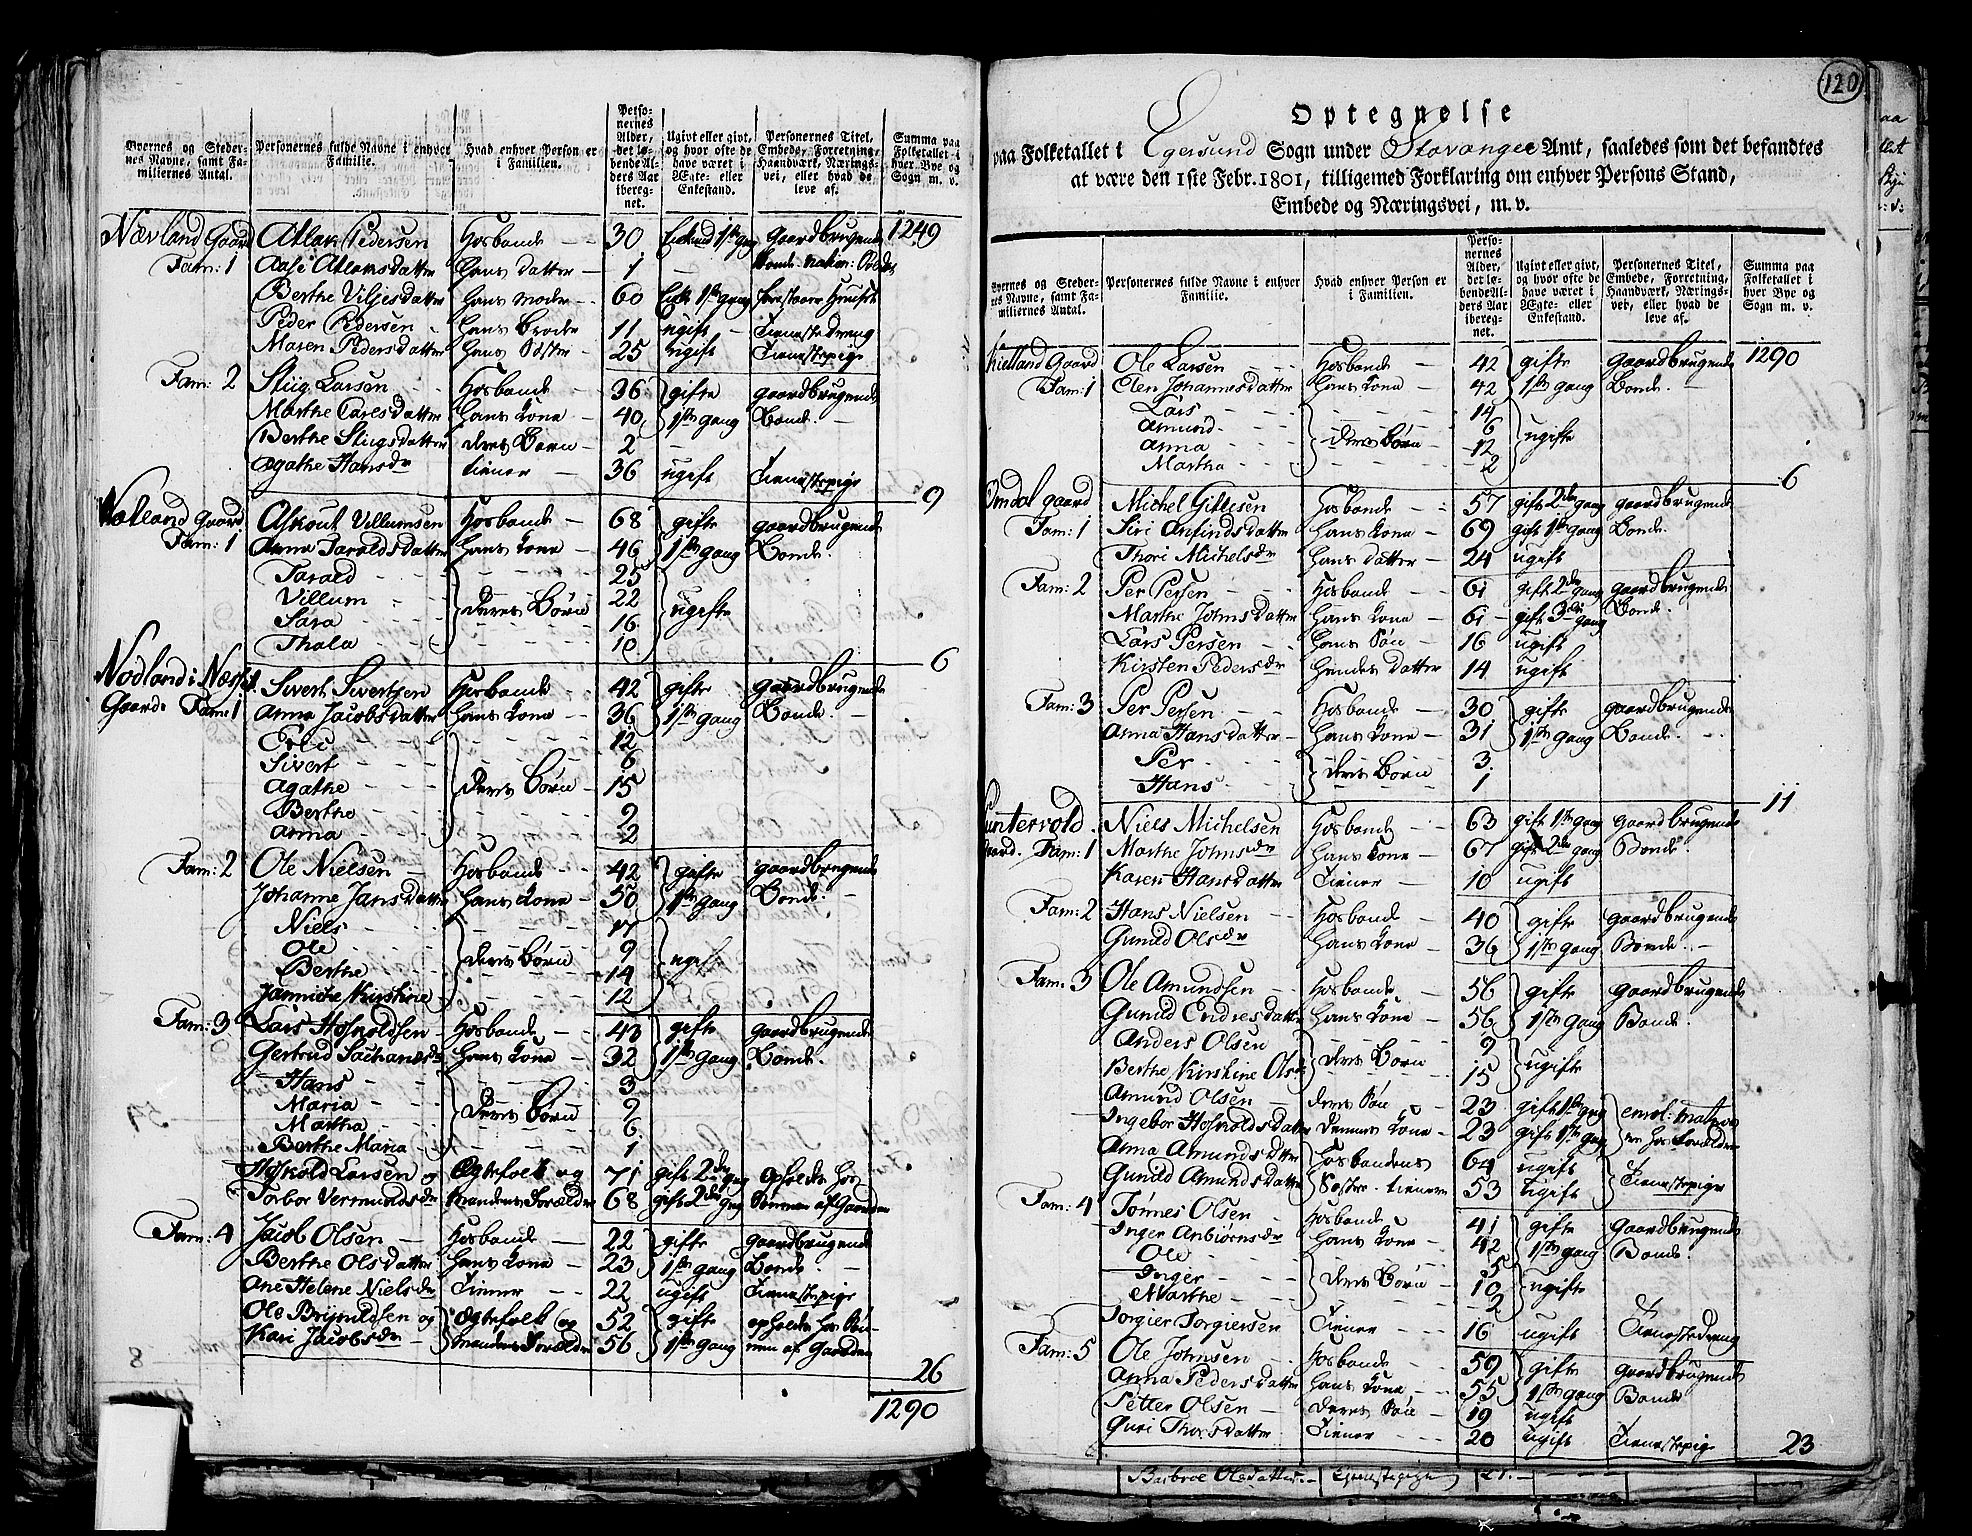 Byernes og Steder-
nes Navne, samt Fa-
miliernes Antal.
Personernes fulde Navne i enhver
Familie.
Hvad enhver Person er
i Familien.
Perso-
nernes
Alder,
det lø-
bende Al-
ders Aar
ibereg-
net.
Ugivt eller givt,
og hvor ofte de
have været i
Ægte- eller
Enkestand.
Personernes Titel,
Embede, Forretning,
Haandværk, Nærings-
vei, eller hvad de
leve af.
Summa paa
Folketallet i
hver Bye og
Sogn m. v.
Nævland Gaard Atlak Pedersen Hosbonde 30 1ste gang Gaardbrugende 1249
Fam: 1 Aase Atlaksdatter hans datter 1
Berthe Viljesdatter hans moder 60 1ste gang
Peder Pedersen hans Broder 11 ugift Tienestedreng
Maren Pedersdatter hans Søster 25 ugift Tienestepige
Fam: 2 Stiig Larsen Hosbonde 36 gifte gaardbrugende
Marthe Carlsdatter hans kone 40 1ste gang Bonde
Berthe Stiigsdatter deres Børn 2
Agathe Hansdr tiener 36 ugift Tienestepige
9
Gaard Askout Villumsen Hosbonde 68 gifte gaardbrugende
Fam: 1 Anna Taraldsdatter hans kone 46 1ste gang Bonde
Tarald 25
Villum deres Børn 22 ugifte
Sara 16
Thala 10
6
Nodland i Sivert Sivertsen Hosbonde 42 gifte gaardbrugende
Gaard Fam: 1 Anna Jacobsdatter hans kone 36 1ste gang Bonde
12
Sivert 6
Agathe deres Børn 15
Berthe 9
Anna 2
Fam: 2 Ole Nielsen Hosbonde 42 gifte gaardbrugende
Johanne Jansdatter hans kone 50 1ste gang Bonde
Niels 17
Ole deres Børn 9 ugift
Berthe 14
Jannicke Kirstine 12
Fam: 3 Lars Hosholdsen Hosbonde 43 gifte gaardbrugende
Gertrud Sachariædr hans kone 32 1ste gang Bonde
Hans 3
Maria deres Børn 9
Martha 6
Berthe Maria 1
Hoshold Larsen og Ægtefolk og 71 gift 2den gang opholdes hos
Torbor Vermundsdr mandens Forældre 68 gift 2den gang Sønnen af Gaarden
Fam: 4 Jacob Olsen Hosbonde 22 gifte gaardbrugende
Berthe Olsdatter hans kone 23 1ste gang Bonde
Ane Helene Nielsdr Tiener 22 ugift Tienestepige
Ole Brijnildsen og Ægtefolk og 52 gifte opholdes hos Søn-
Kari Jacobsdr mandens Forældre 56 1ste gang nen af Gaarden
26
1290
120
Optegnelse
paa Folketallet i Egersund Sogn under Stavanger Amt, saaledes som det befandtes
at være den 1ste Febr. 1801, tilligemed Forklaring om enhver Persons Stand,
Embede og Næringsvei, m. v.
Byernes og Steder-
nes Navne, samt Fa-
miliernes Antal.
Personernes fulde Navne i enhver
Familie.
Hvad enhver Person er
i Familien.
Perso-
nernes
Alder,
det lø-
bende Al-
ders Aar
ibereg-
net.
Ugivt eller givt,
og hvor ofte de
have været i
Ægte- eller
Enkestand.
Personernes Titel,
Embede, Forretning,
Haandværk, Nærings-
vei, eller hvad de
leve af.
Summa paa
Folketallet i
hver Bye og
Sogn m. v.
Kielland Gaard Ole Larsen Hosbonde 42 gifte gaardbrugende 1290
Fam: 1 Olen Johannesdatter hans kone 42 1ste gang Bonde
Lars 14
Amund deres Børn 6 ugifte
Anna 12
Martha 2
6
Omdal gaard Michel Gitlesen Hosbonde 57 gift 2den gang gaardbrugende
Fam: 1 Siri Anfindsdatter hans kone 69 gift 1ste gang Bonde
Thori Michelsdr hans datter 24 ugift
Fam: 2 Per Persen Hosbonde 61 gift 2den gang gaardbrugende
Marthe Johnsdatter hans kone 61 gift 3die gang Bonde
Lars Persen hans Søn 16 ugift
Kirsten Pedersdr hendes datter 14 ugift
Fam: 3 Per Persen Hosbonde 30 gifte gaardbrugende
Anna Hansdatter hans kone 31 1ste gang Bonde
Per deres Børn 3
Hans 1
11
Puntervold Niels Michelsen Hosbonde 63 gift 1ste gang gaardbrugende
Gaard. Fam: 1 Marthe Johnsdr hans kone 67 gift 2den gang Bonde
Karen Hansdatter Tiener 10 ugift
Fam: 2 Hans Nielsen Hosbonde 40 gifte gaardbrugende
Gunild Olsdr hans kone 36 1ste gang Bonde
Fam: 3 Ole Amundsen Hosbonde 56 gifte gaardbrugende
Gunild Endresdatter hans kone 56 1ste gang Bonde
Anders Olsen deres Børn 9 ugifte
Berthe Kirstine Olsdr 15
Amund Olsen deres Søn 23 gift 1ste gang enrol: matros
Ingebor Hosholdsdatter dennes kone 23 gift 1ste gang er hos Forældre
Anna Amundsdatter Hosbondens 64 ugift Tienestepige
Gunild Amundsdatter Søstre tienere 53 ugift
Fam: 4 Tønnes Olsen Hosbonde 41 gifte gaardbrugende
Inger Anbiørnsdr hans kone 42 1ste gang Bonde
Ole 5
Inger deres Børn 10 ugifte
Marthe 2
Torgier Torgiersen Tiener 16 ugift Tienestedreng
Fam: 5 Ole Johnsen Hosbonde 59 gifte gaardbrugende
Anna Pedersdatter hans kone 55 1ste gang Bonde
Petter Olsen deres Søn 19 ugift
Guri Thorsdatter Tiener 20 ugift Tienestepige
23
Barbroe Olsdatter Tjenestepige 21